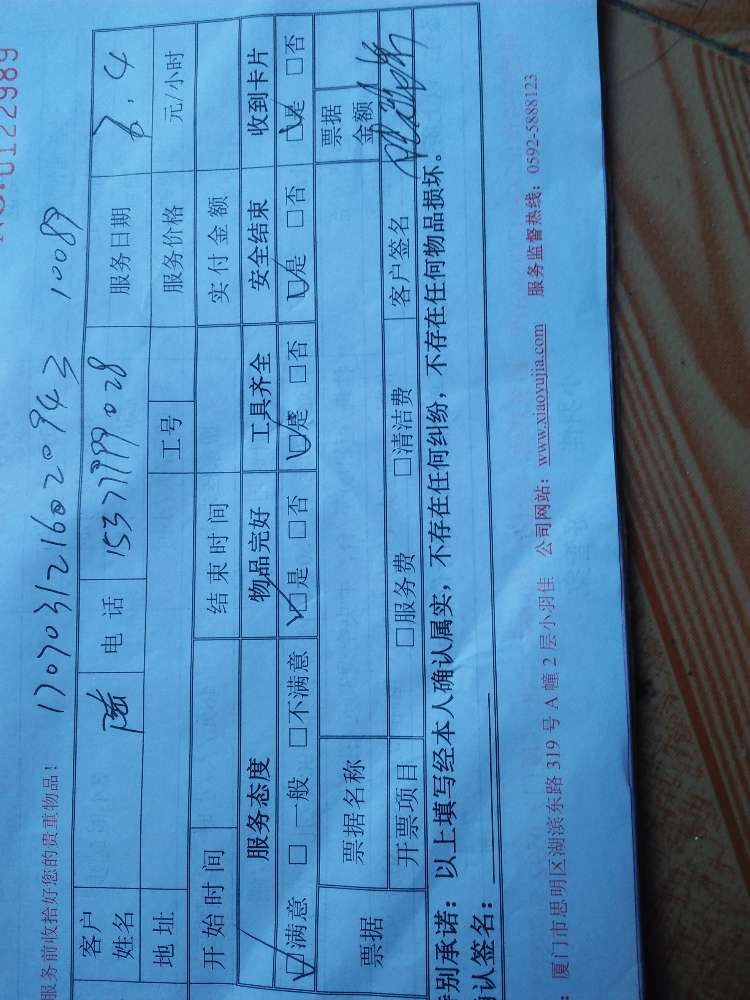 NO.0122989
服务前收拾好您的贵重物品！ 1707031216020943 10089
客户姓名 陆 电话 15377999028 服务日期 8.4
地址 工号 服务价格 元/小时
开始时间 结束时间 实付金额
服务态度 物品完好 工具齐全 安全结束 收到卡片
☑满意 □一般 □不满意 ☑是 □否 ☑是 □否 ☑是 □否 ☑是 □否
票据 票据名称 票据金额
开票项目 □服务费 □清洁费 客户签名
别承诺：以上填写经本人确认属实，不存在任何纠纷，不存在任何物品损坏。
认签名：
：厦门市思明区湖滨东路 319 号 A 幢 2 层小羽佳 公司网站：www.xiaoyujia.com 服务监督热线：0592-5888123